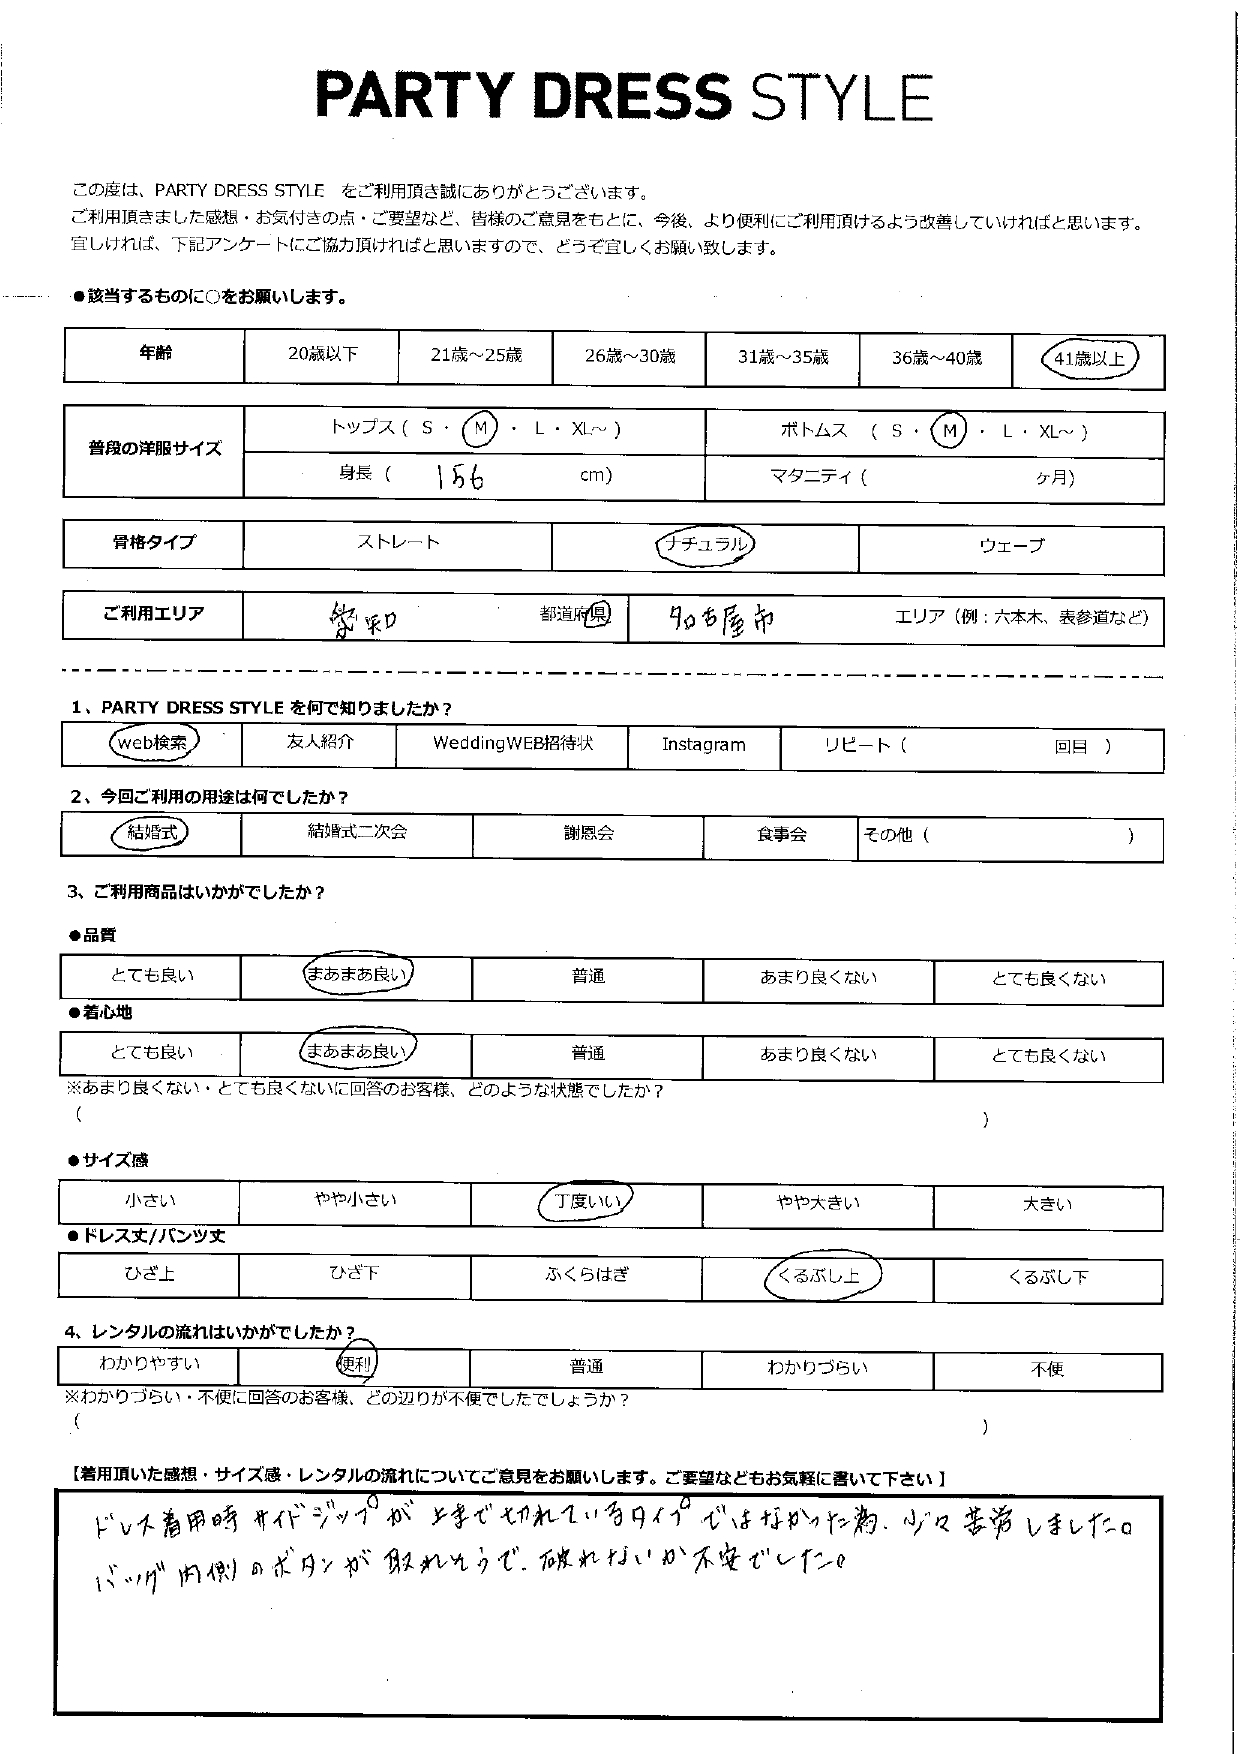 PARTY DRESS STYLE
この度は、PARTY DRESS STYLE をご利用頂き誠にありがとうございます。
ご利用頂きました感想・お気付きの点・ご要望など、皆様のご意見をもとに、今後、より便利にご利用頂けるよう改善していければと思います。
宜しければ、下記アンケートにご協力頂ければと思いますので、どうぞ宜しくお願い致します。
●該当するものに○をお願いします。
年齢 20歳以下 21歳～25歳 26歳～30歳 31歳～35歳 36歳～40歳 41歳以上
普段の洋服サイズ トップス ( S ・ M ・ L ・ XL～ ) ボトムス ( S ・ M ・ L ・ XL～ )
身長 ( 156 cm) マタニティ ( ヶ月)
骨格タイプ ストレート ナチュラル ウェーブ
ご利用エリア 愛知 都道府県 名古屋市 エリア (例：六本木、表参道など)
1、PARTY DRESS STYLE を何で知りましたか？
web検索 友人紹介 WeddingWEB招待状 Instagram リピート ( 回目 )
2、今回ご利用の用途は何でしたか？
結婚式 結婚式二次会 謝恩会 食事会 その他 ( )
3、ご利用商品はいかがでしたか？
●品質
とても良い まあまあ良い 普通 あまり良くない とても良くない
●着心地
とても良い まあまあ良い 普通 あまり良くない とても良くない
※あまり良くない・とても良くないに回答のお客様、どのような状態でしたか？
( )
●サイズ感
小さい やや小さい 丁度いい やや大きい 大きい
●ドレス丈/パンツ丈
ひざ上 ひざ下 ふくらはぎ くるぶし上 くるぶし下
4、レンタルの流れはいかがでしたか？
わかりやすい 便利 普通 わかりづらい 不便
※わかりづらい・不便に回答のお客様、どの辺りが不便でしたでしょうか？
( )
【着用頂いた感想・サイズ感・レンタルの流れについてご意見をお願いします。ご要望などもお気軽に書いて下さい】
ドレス着用時サイドジップが上まで切れているタイプではなかった為、少々苦労しました。
バッグ内側のボタンが取れそうで、破れないか不安でした。